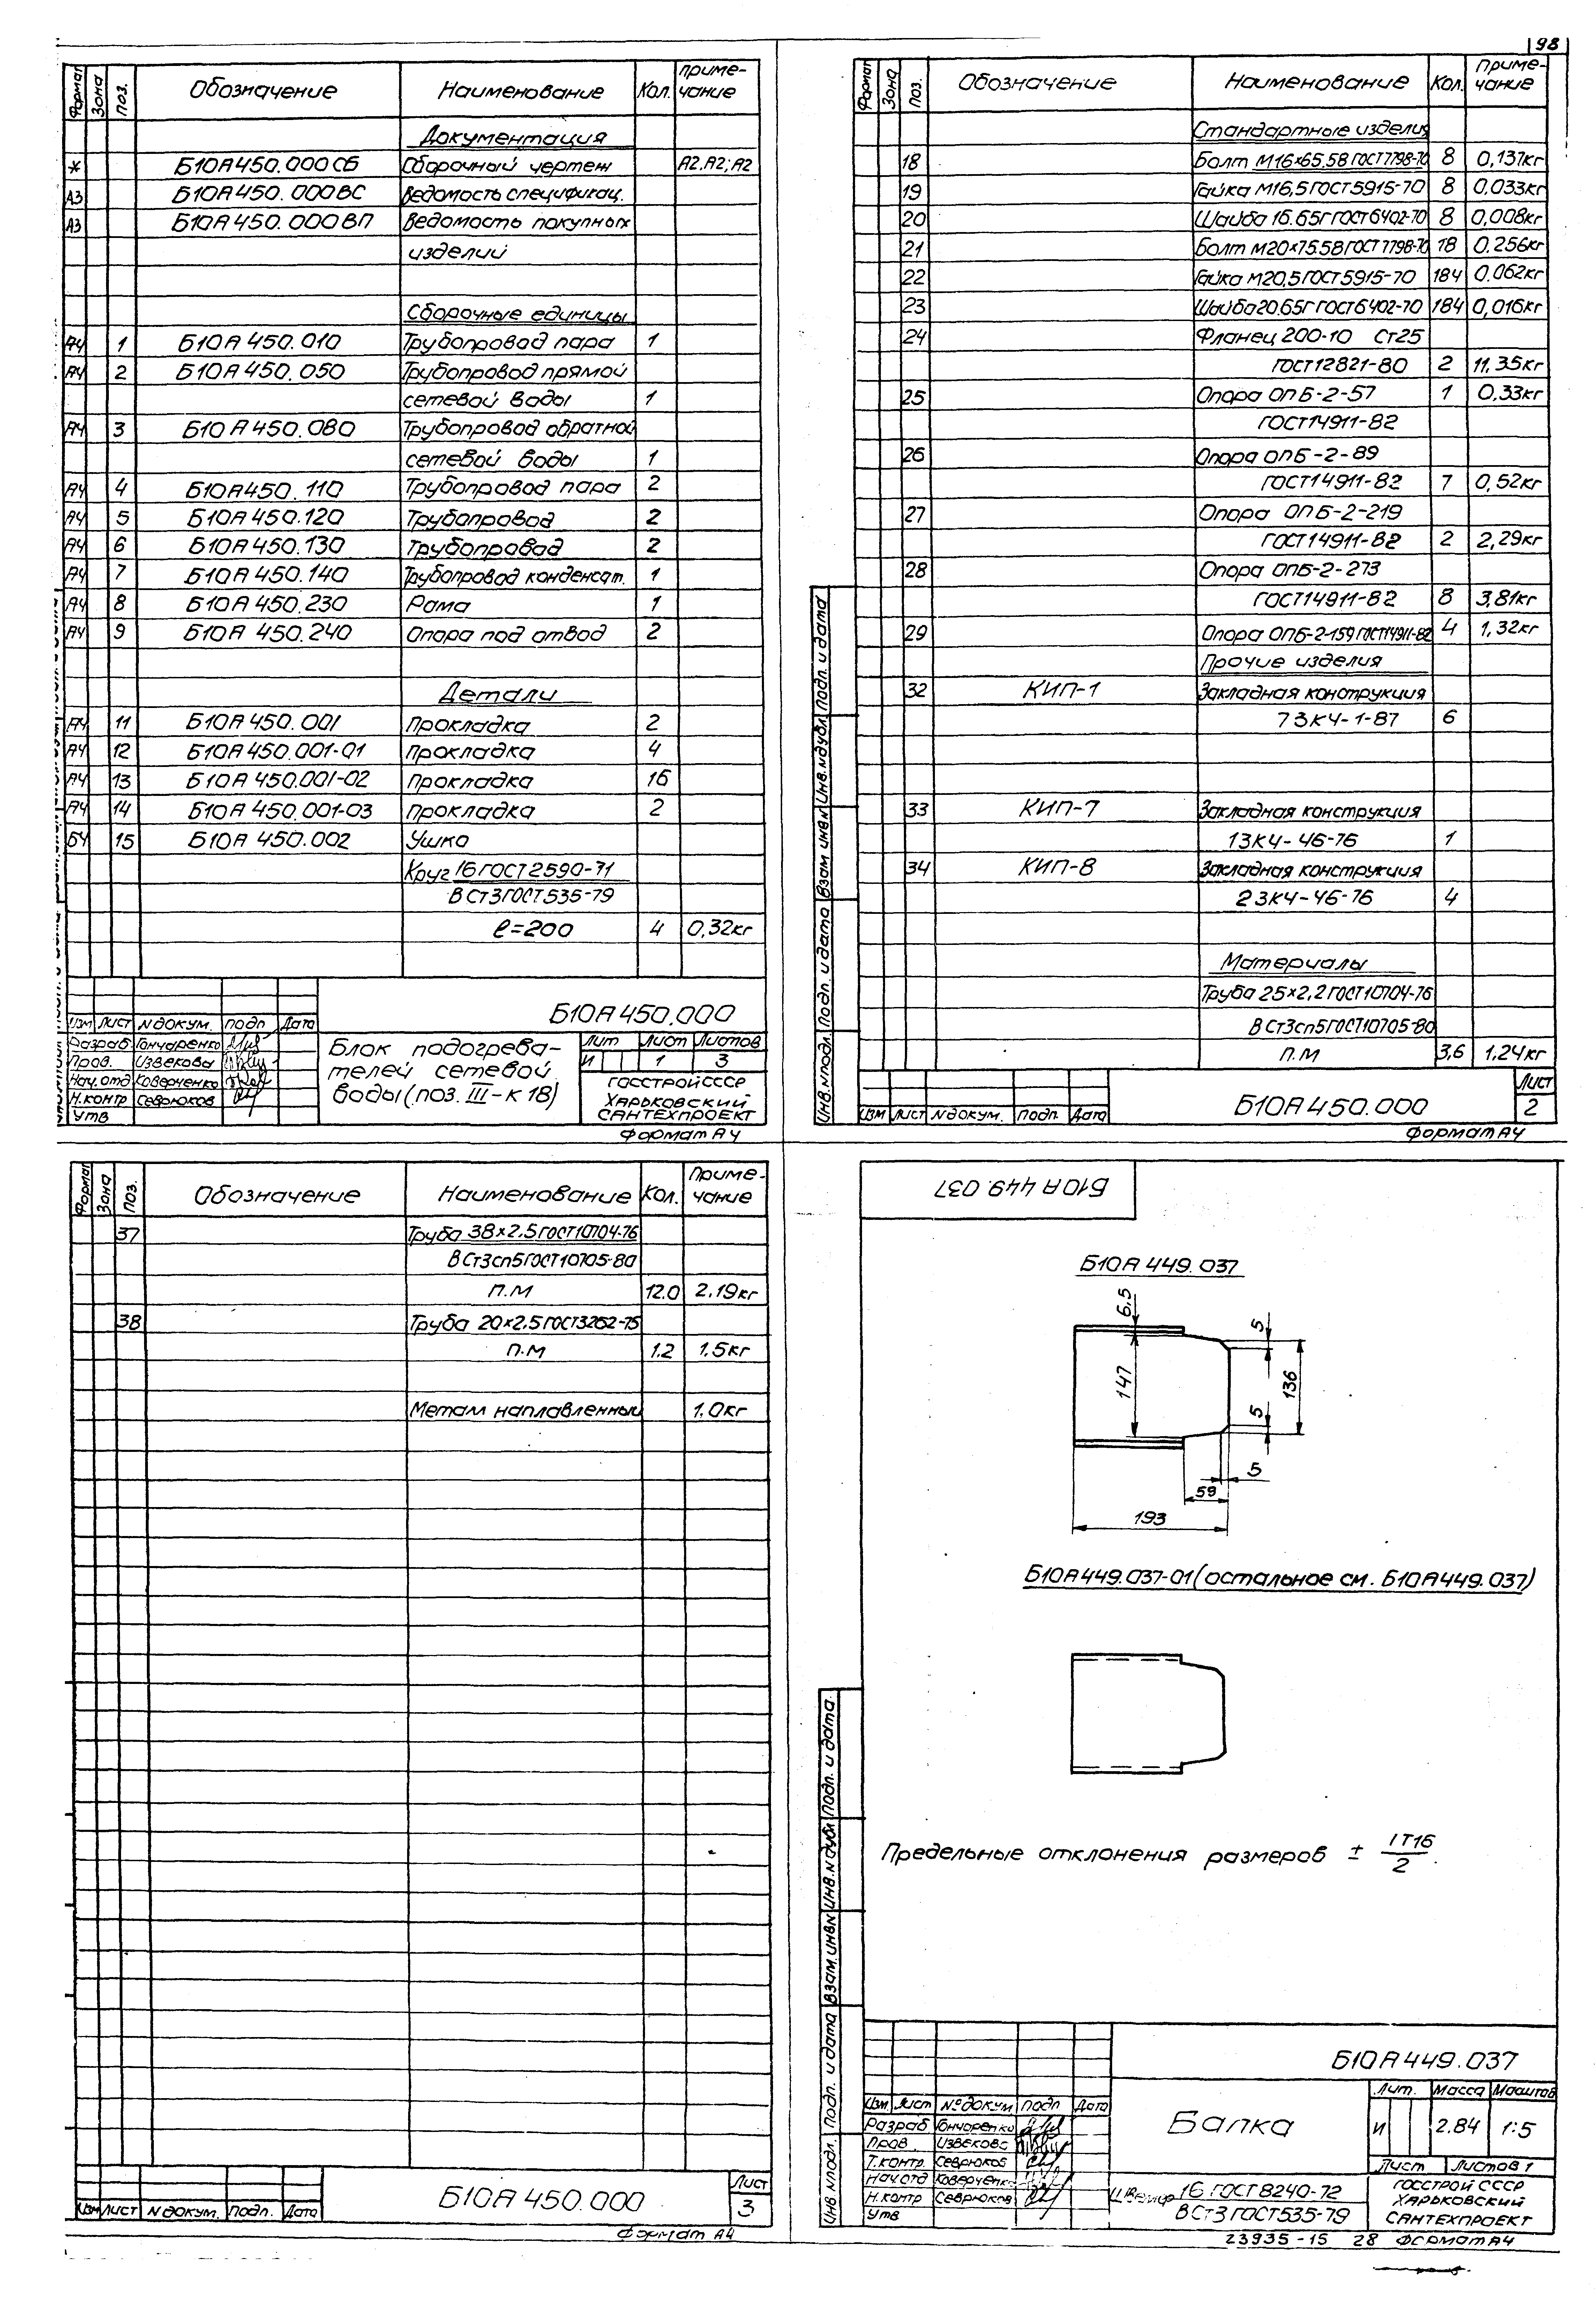 98
Формат Зона Поз. Обозначение Наименование Кол. Приме-чание
Документация
* Б10А450.000СБ Сборочный чертеж А2.А2;А2
А3 Б10А450.000ВС Ведомость спецификац.
А3 Б10А450.000ВП Ведомость покупных
изделий
Сборочные единицы
А4 1 Б10А450.010 Трубопровод пара 1
А4 2 Б10А450.050 Трубопровод прямой
сетевой воды 1
А4 3 Б10А450.080 Трубопровод обратной
сетевой воды 1
А4 4 Б10А450.110 Трубопровод пара 2
А4 5 Б10А450.120 Трубопровод 2
А4 6 Б10А450.130 Трубопровод 2
А4 7 Б10А450.140 Трубопровод конденсат. 1
А4 8 Б10А450.230 Рама 1
А4 9 Б10А450.240 Опора под отвод 2
Детали
А4 11 Б10А450.001 Прокладка 2
А4 12 Б10А450.001-01 Прокладка 4
А4 13 Б10А450.001-02 Прокладка 16
А4 14 Б10А450.001-03 Прокладка 2
БЧ 15 Б10А450.002 Ушко
Круг 16 ГОСТ 2590-71
В Ст3 ГОСТ 535-79
ℓ=200 4 0,32кг
Б10А450.000
Изм Лист N докум. Подп Дата
Разраб. Гончаренко
Пров. Извекова
Нач.отд Коверченко
Н.контр Севрюков
Утв
Блок подогрева-
телей сетевой
воды (поз. III-к 18)
Лит Лист Листов
И 1 3
ГОССТРОЙ СССР
ХАРЬКОВСКИЙ
САНТЕХПРОЕКТ
Формат А4
Формат Зона Поз. Обозначение Наименование Кол. Приме-чание
Стандартные изделия
18 Болт М16×65.58 ГОСТ 7798-70 8 0,137кг
19 Гайка М16,5 ГОСТ 5915-70 8 0.033кг
20 Шайба 16.65Г ГОСТ 6402-70 8 0,008кг
21 Болт М20×75.58 ГОСТ 7798-70 18 0.256кг
22 Гайка М20,5 ГОСТ 5915-70 184 0.062кг
23 Шайба 20.65Г ГОСТ 6402-70 184 0,016кг
24 Фланец 200-10 Ст25
ГОСТ 12821-80 2 11,35кг
25 Опора ОПБ-2-57 1 0,33кг
ГОСТ 14911-82
26 Опора ОПБ-2-89
ГОСТ 14911-82 7 0,52кг
27 Опора ОПБ-2-219
ГОСТ 14911-82 2 2,29кг
28 Опора ОПБ-2-273
ГОСТ 14911-82 8 3,81кг
29 Опора ОПБ-2-159 ГОСТ 14911-82 4 1,32кг
Прочие изделия
32 КИП-1 Закладная конструкция
7 ЗК4-1-87 6
33 КИП-7 Закладная конструкция
1 ЗК4-46-76 1
34 КИП-8 Закладная конструкция
2 ЗК4-46-76 4
Материалы
Труба 25×2,2 ГОСТ 10704-76
В Ст3сп5 ГОСТ 10705-80
п.м 3,6 1.24кг
Инв.N подл. Подп. и дата Взам инв N Инв.N дубл. Подп. и дата
Изм Лист N докум. Подп. Дата
Б10А450.000
Лист
2
Формат А4
Формат Зона Поз. Обозначение Наименование Кол. Приме-чание
37 Труба 38×2.5 ГОСТ 10704-76
В Ст3сп5 ГОСТ 10705-80
п.м 12.0 2.19кг
38 Труба 20×2.5 ГОСТ 3262-75
п.м 1.2 1.5кг
Металл наплавленный 1.0кг
Изм Лист N докум. Подп. Дата
Б10А450.000
Лист
3
Формат А4
Б10А449.037
Б10А449.037
6.5
5
147
136
5
5
59
193
Б10А449.037-01 (остальное см. Б10А449.037)
Предельные отклонения размеров ± IT16/2.
Инв N подл. Подп. и дата Взам.инв N Инв.N дубл Подп. и дата
Б10А449.037
Изм Лист № докум Подп Дата
Разраб Гончаренко
Пров. Извекова
Т.контр. Севрюков
Нач отд Коверченко
Н.контр Севрюков
Утв
Балка
Лит. Масса Масштаб
И 2.84 1:5
Лист Листов 1
Швеллер 16 ГОСТ 8240-72
В Ст3 ГОСТ 535-79
ГОССТРОЙ СССР
ХАРЬКОВСКИЙ
САНТЕХПРОЕКТ
23935-15 28 Формат А4